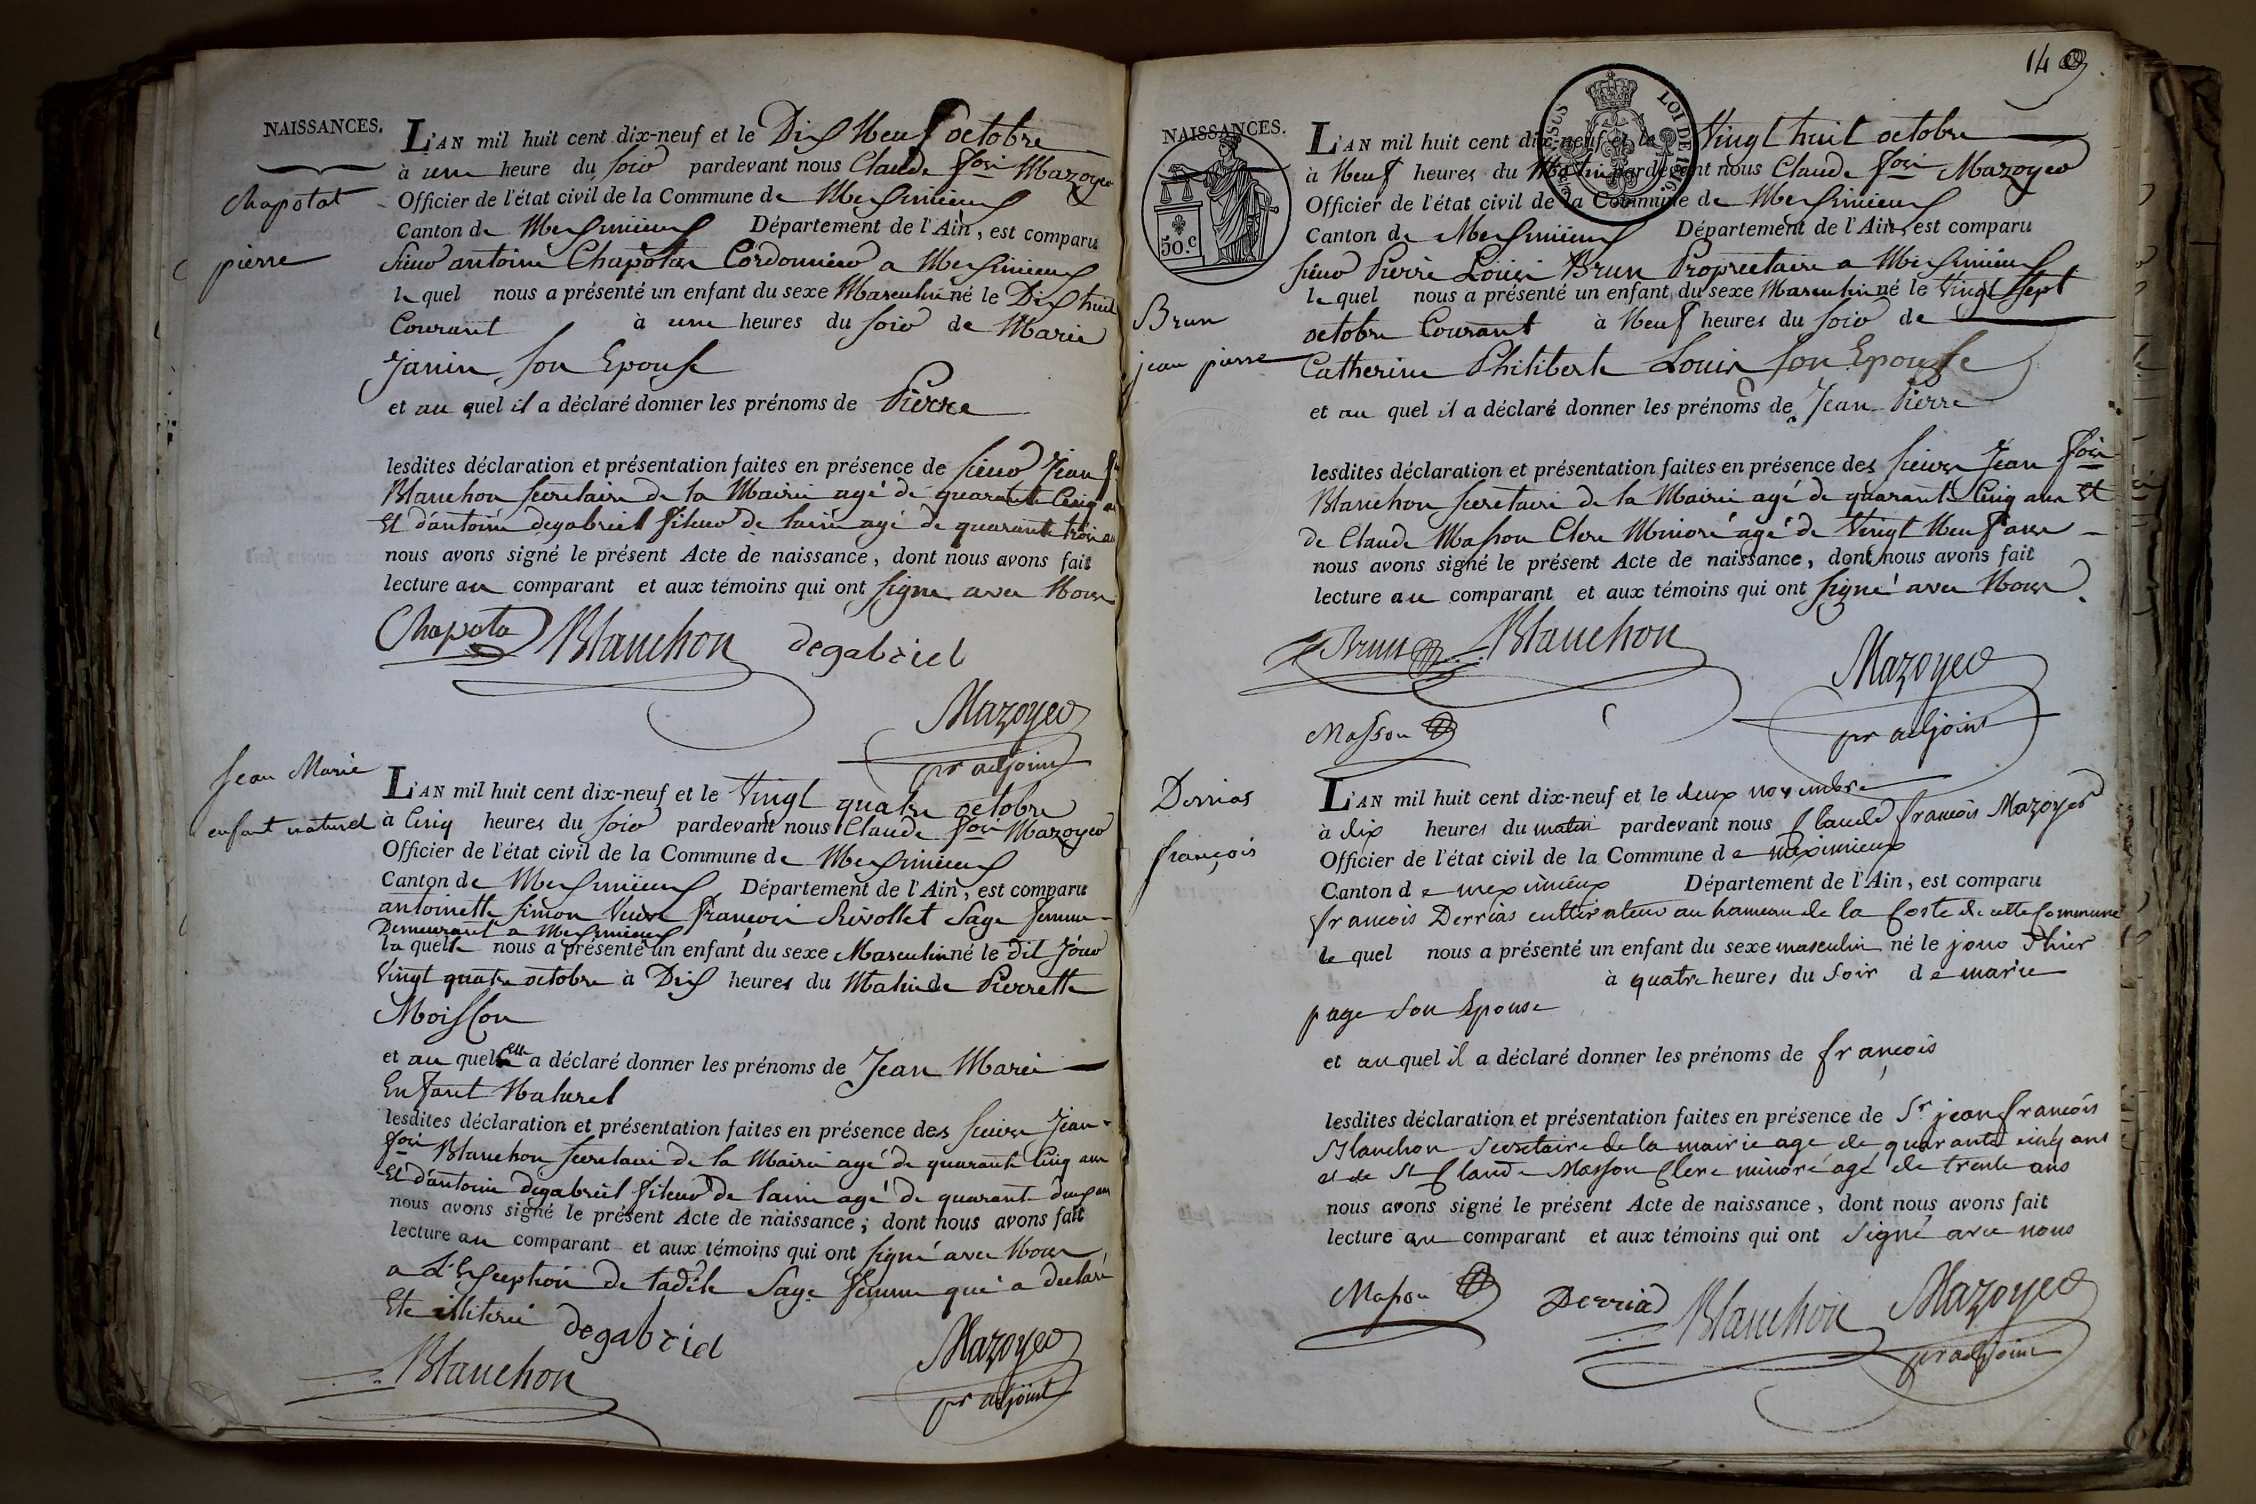 NAISSANCES.
Chapotat
pierre
L'AN mil huit cent dix-neuf et le Dix Neuf octobre
à une heure du soir pardevant nous Claude foi Mazoyer
Officier de l'état civil de la Commune de Meximieux
Canton de Meximieux Département de l'Ain, est comparu
sieur antoine Chapotat Cordonnier a Meximieux
le quel nous a présenté un enfant du sexe Masculin né le Dix huit
Courant à une heures du soir de Marie
Janin son Epouse
et au quel il a déclaré donner les prénoms de Pierre
lesdites déclaration et présentation faites en présence de sieur Jean
Blanchon secretaire de la Mairie agé de quarante Cinq
Et d'antoine degabriel fileur de laine agé de quarante trois
nous avons signé le présent Acte de naissance, dont nous avons fait
lecture au comparant et aux témoins qui ont signé avec Nous
Chapota Blanchon degabriel
Mazoyer
pr adjoint
Jean Marie
enfant naturel
L'AN mil huit cent dix-neuf et le Vingt quatre octobre
à Cinq heures du soir pardevant nous Claude foi Mazoyer
Officier de l'état civil de la Commune de Meximieux
Canton de Meximieux Département de l'Ain, est comparu
antoinette simon Veuve francois Rivollet Sage femme
Demeurant a Meximieux
la quelle nous a présenté un enfant du sexe Masculin né le dit Jour
Vingt quatre octobre à Dix heures du Matin de Pierrette
Moisson
et au quel elle a déclaré donner les prénoms de Jean Marie
Enfant Naturel
lesdites déclaration et présentation faites en présence des sieurs Jean
foi Blanchon secretaire de la Mairie agé de quarante Cinq ans
Et d'antoine degabriel fileur de laine agé de quarante deux ans
nous avons signé le présent Acte de naissance; dont nous avons fait
lecture au comparant et aux témoins qui ont signé avec Nous
a L'Exception de ladite Sage femme qui a déclaré
Ete illiterée degabriel
Blanchon
Mazoyer
pr adjoint
14
NAISSANCES.
LOI DE 1816.
50.c
Brun
jean pierre
L'AN mil huit cent dix-neuf et le Vingt huit octobre
à Neuf heures du Matin pardevant nous Claude foi Mazoyer
Officier de l'état civil de la Commune de Meximieux
Canton de Meximieux Département de l'Ain, est comparu
sieur Pierre Louis Brun Proprietaire a Meximieux
le quel nous a présenté un enfant du sexe Masculin né le Vingt Sept
octobre Courant à Neuf heures du soir de
Catherine Philiberte Louis son Epouse
et au quel il a déclaré donner les prénoms de Jean Pierre
lesdites déclaration et présentation faites en présence des sieurs Jean foi
Blanchon secretaire de la Mairie agé de quarante Cinq ans Et
de Claude Masson Clerc Minoré agé de Vingt Neuf ans
nous avons signé le présent Acte de naissance, dont nous avons fait
lecture au comparant et aux témoins qui ont signé avec Nous.
Brun Blanchon
Mazoyer
pr adjoint
Masson
Derrias
françois
L'AN mil huit cent dix-neuf et le deux novembre
à dix heures du matin pardevant nous Claude françois Mazoyer
Officier de l'état civil de la Commune de meximieux
Canton de meximieux Département de l'Ain, est comparu
françois Derrias cultivateur au hameau de la Coste de cette Commune
le quel nous a présenté un enfant du sexe masculin né le jour d'hier
à quatre heures du soir de marie
page son Epouse
et au quel il a déclaré donner les prénoms de françois
lesdites déclaration et présentation faites en présence de Sr jean françois
Blanchon Secretaire de la mairie age de quarante cinq ans
et de Sr Claude Masson Clerc minoré agé de trente ans
nous avons signé le présent Acte de naissance, dont nous avons fait
lecture au comparant et aux témoins qui ont signé avec nous
Masson Derriad Blanchon Mazoyer
pr adjoint